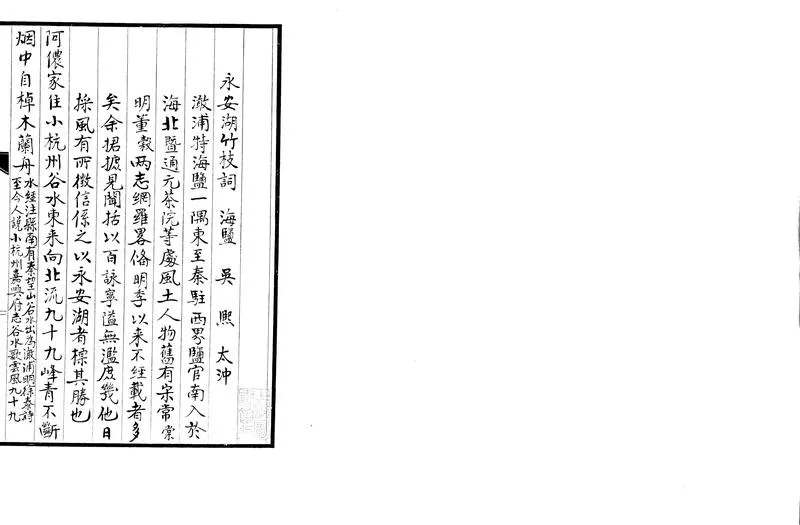 永安湖竹枝詞 海鹽 吳熙 太沖
澉浦特海鹽一隅東至秦駐西界鹽官南入於
海北暨通元茶院等處風土人物舊有宋常棠
明董穀兩志網羅畧俻明季以来不經載者多
矣余捃摭見聞括以百詠寧謐無濫庶幾他日
採風有所徵信係之以永安湖者標其勝也
阿儂家住小杭州谷水東来向北流九十九峰青不斷
烟中自棹木蘭舟
水經注縣南有秦望山谷水出爲澉浦明徐泰詩
至今人説小杭州嘉興府志谷水歌雲風九十九